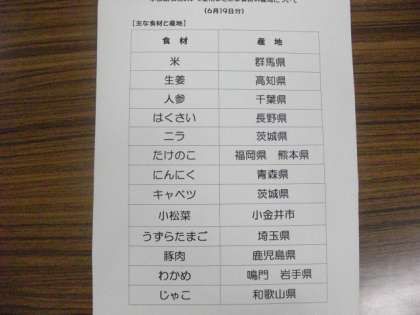 (6月19日分)
[主な食材と産地]
食 材 産 地
米 群馬県
生姜 高知県
人参 千葉県
はくさい 長野県
ニラ 茨城県
たけのこ 福岡県 熊本県
にんにく 青森県
キャベツ 茨城県
小松菜 小金井市
うずらたまご 埼玉県
豚肉 鹿児島県
わかめ 鳴門 岩手県
じゃこ 和歌山県